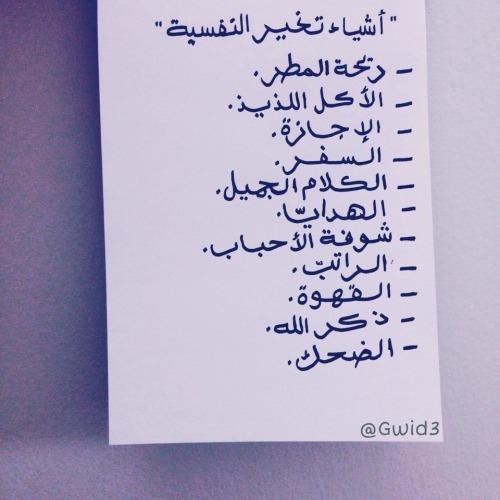 "أشياء تغير النفسية"
- ريحة المطر.
- الأكل اللذيذ.
- الإجازة.
- السفر.
- الكلام الجميل.
- الهدايا.
- شوفة الأحباب.
- الراتب.
- القهوة.
- ذكر الله.
- الضحك.
@Gwid3